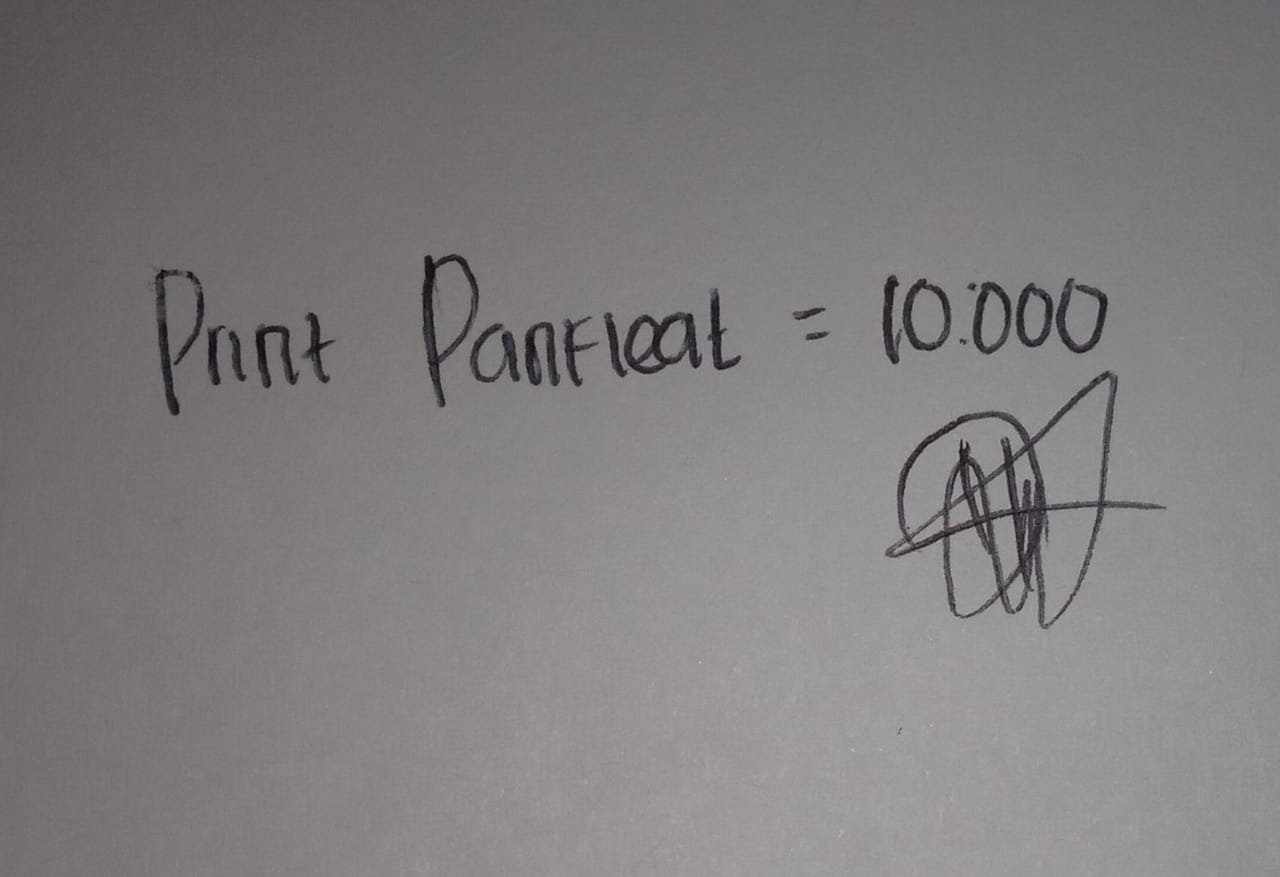 Print Panfleat = 10.000